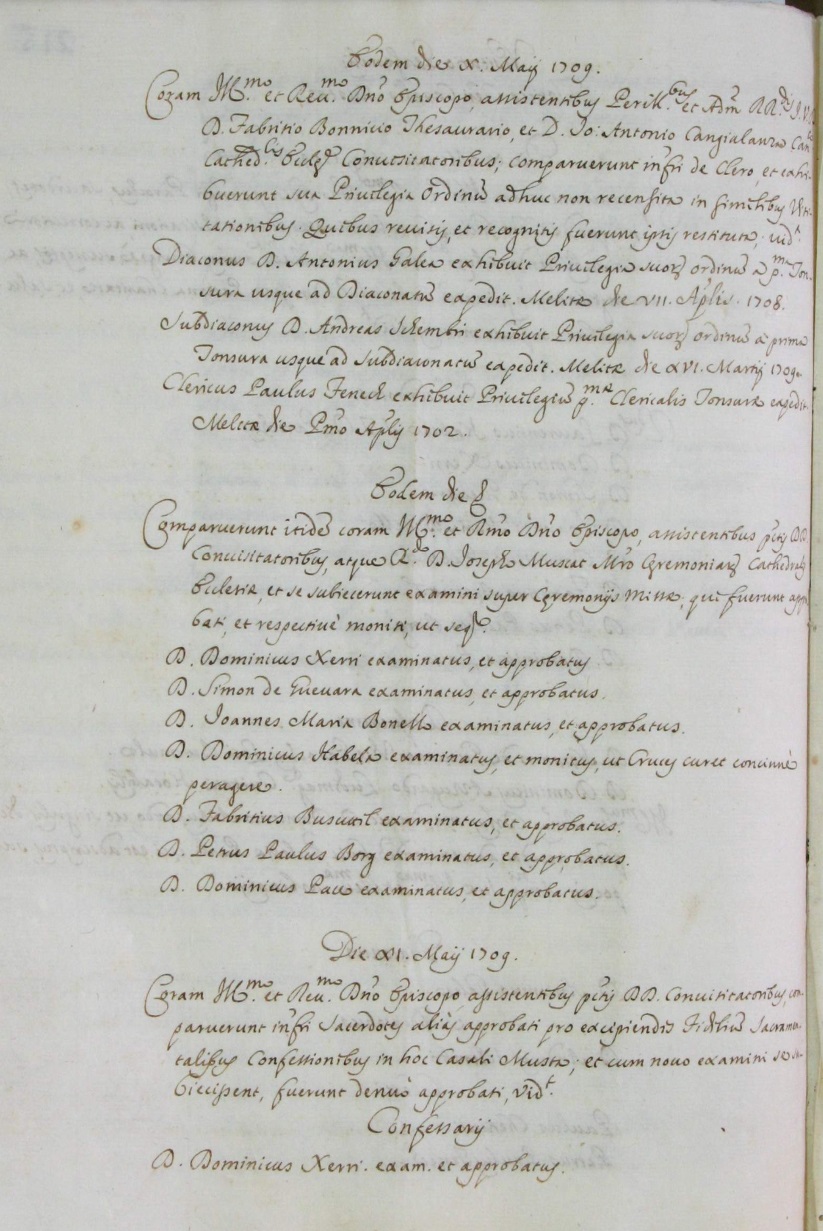 Eodem die X. Maij 1709.
Coram Ill.mo et Reu.mo Dno Episcopo, assistentibus Perill.bus et Adm RR.dis
D. Fabritio Bonnicio Thesaurario, et D. Io: Antonio Cangialanza Can.
Cathed.lis Eccl. Conuisitatoribus; comparuerunt infri de Clero, et exhi-
buerunt sua Priuilegia Ordinũ adhuc non recensita in similibus Visi-
tationibus. Quibus reuisis, et recognitis fuerunt ipsis restituta, vid.t
Diaconus D. Antonius Galea exhibuit Priuilegia suoꝝ ordinũ a p.ma Ton-
sura usque ad Diaconatũ expedit. Melitæ die VII. Aplis. 1708.
Subdiaconus D. Andreas Schembri exhibuit Priuilegia suoꝝ ordinũ à prima
Tonsura usque ad Subdiaconatũ expedit. Melitæ die XVI. Martij 1709.
Clericus Paulus Fenech exhibuit Priuilegiũ p.mæ Clericalis Tonsuræ expedit.
Melitæ die Pmo Aplis 1702.
Eodem die
Comparuerunt itidẽ coram Ill.mo et Rmo Dno Episcopo, assistentibus ptis DD.
Conuisitatoribus, atque R.do D. Joseph Muscat Mro Cęremoniaꝝ Cathedralis
Ecclesiæ, et se subiecerunt examini super Cęremonijs Missæ, qui fuerunt appro
bati, et respectiuè moniti, ut seq.r
D. Dominicus Xerri examinatus, et approbatus
D. Simon de Gueuara examinatus, et approbatus.
D. Joannes Maria Bonell examinatus, et approbatus.
D. Dominicus Habela examinatus, et monitus, ut Cruces curet concinnè
peragere.
D. Fabritius Busuttil examinatus, et approbatus.
D. Petrus Paulus Borg examinatus, et approbatus.
D. Dominicus Pace examinatus, et approbatus.
Die XI. Maij 1709.
Coram Ill.mo et Reu.mo Dno Episcopo assistentibus ptis DD. Conuisitatoribus, com-
paruerunt infri Sacerdotes aliàs approbati pro excipiendis Fideliũ Sacramen-
talibus Confessionibus in hoc Casali Mustæ; et cum nouo examini se su-
biecissent, fuerunt denuò approbati, vid.t
Confessarij
D. Dominicus Xerri. exam. et approbatus.